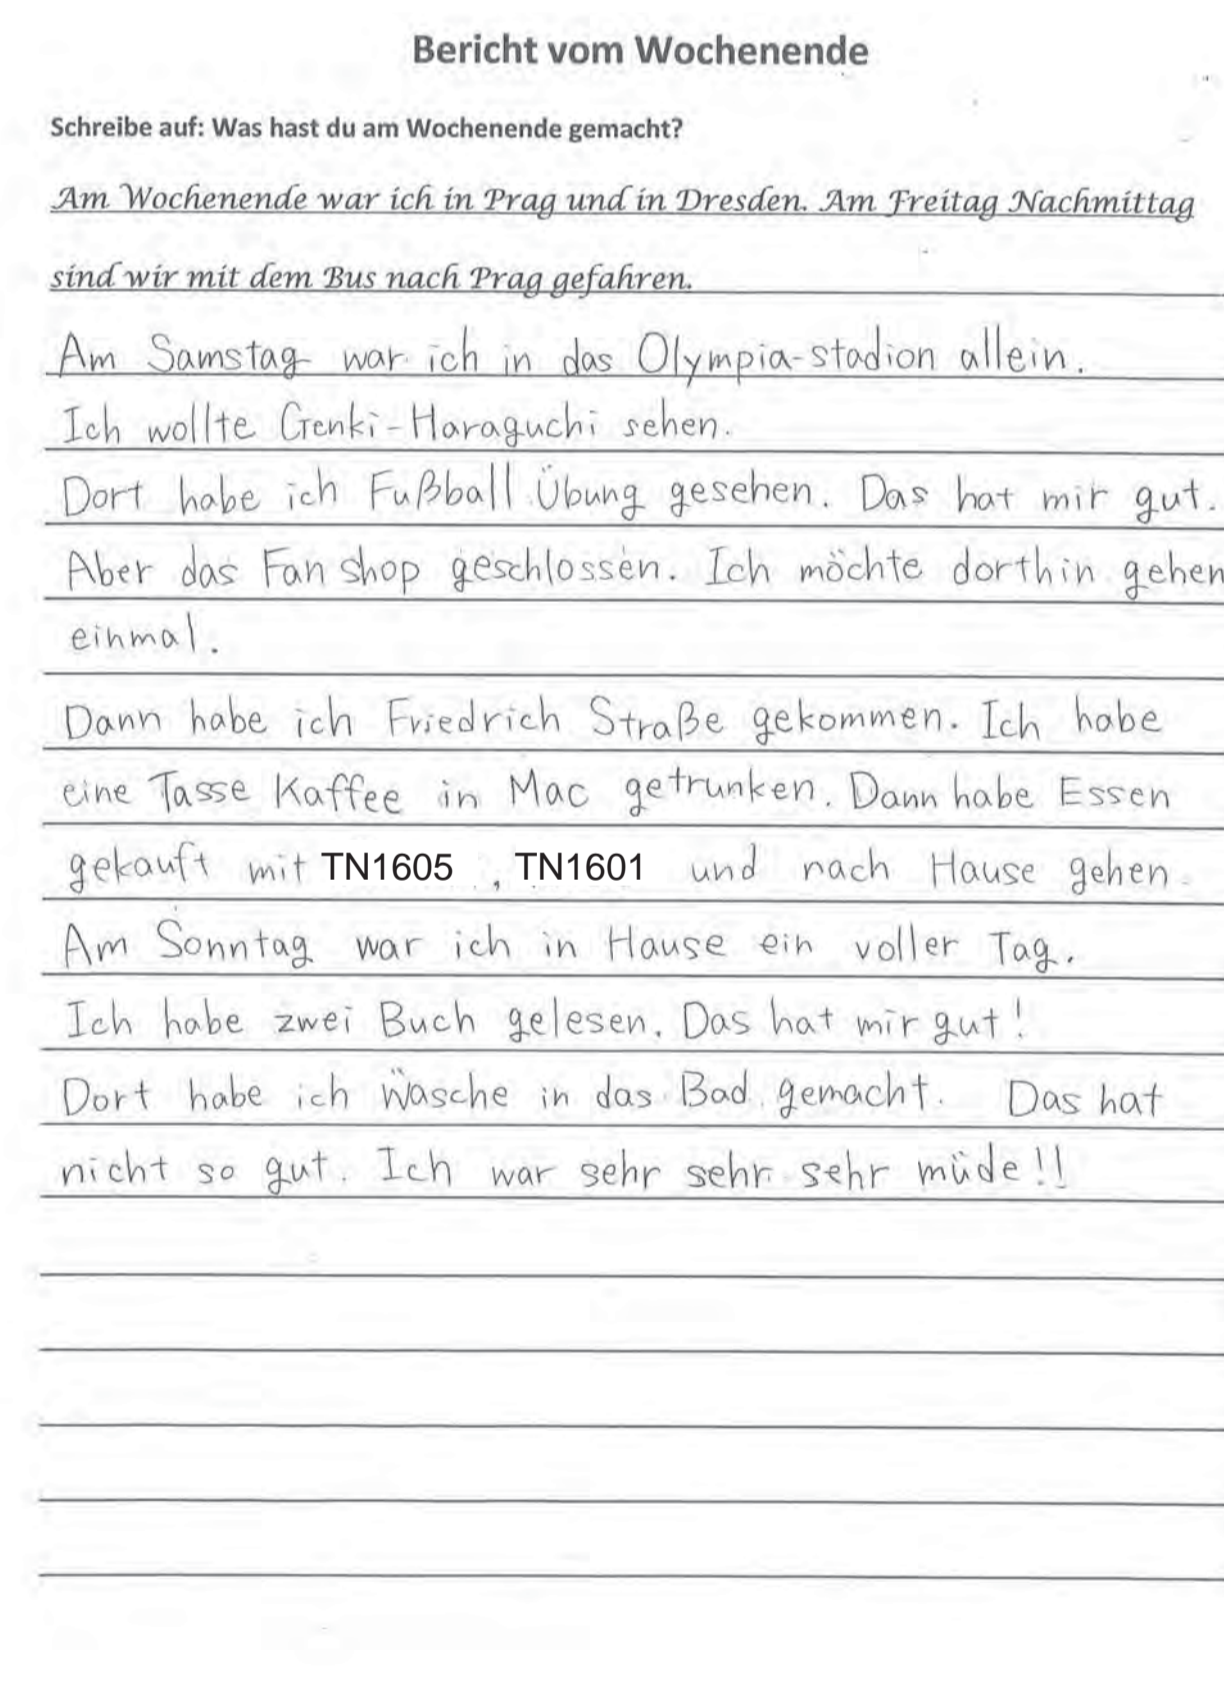 Bericht vom Wochenende
Schreibe auf: Was hast du am Wochenende gemacht?
Am Wochenende war ich in Prag und in Dresden. Am Freitag Nachmittag
sind wir mit dem Bus nach Prag gefahren.
Am Samstag war ich in das Olympia-stadion allein.
Ich wollte Genki-Haraguchi sehen.
Dort habe ich Fußball Übung gesehen. Das hat mir gut.
Aber das Fan shop geschlossen. Ich möchte dorthin gehen
einmal.
Dann habe ich Friedrich Straße gekommen. Ich habe
eine Tasse Kaffee in Mac getrunken. Dann habe Essen
gekauft mit TN1605 , TN1601 und nach Hause gehen.
Am Sonntag war ich in Hause ein voller Tag.
Ich habe zwei Buch gelesen. Das hat mir gut!
Dort habe ich Wäsche in das Bad gemacht. Das hat
nicht so gut. Ich war sehr sehr sehr müde!!